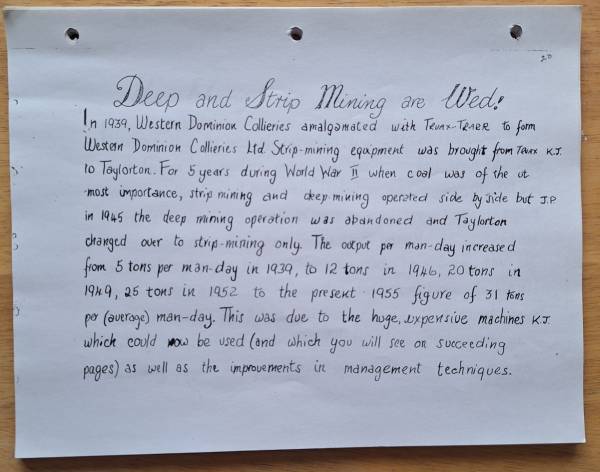 20
Deep and Strip Mining are Wed!
In 1939, Western Dominion Collieries amalgamated with TRUAX-TRAER to form
Western Dominion Collieries Ltd Strip-mining equipment was brought from TRUAX K.J.
to Taylorton. For 5 years during World War II when coal was of the ut
-most importance, strip mining and deep-mining operated side by side but J.P
in 1945 the deep mining operation was abandoned and Taylorton
changed over to strip-mining only. The output per man-day increased
from 5 tons per man-day in 1939, to 12 tons in 1946, 20 tons in
1949, 25 tons in 1952 to the present 1955 figure of 31 tons
per (average) man-day. This was due to the huge, expensive machines K.J.
which could now be used (and which you will see on succeeding
pages) as well as the improvements in management techniques.